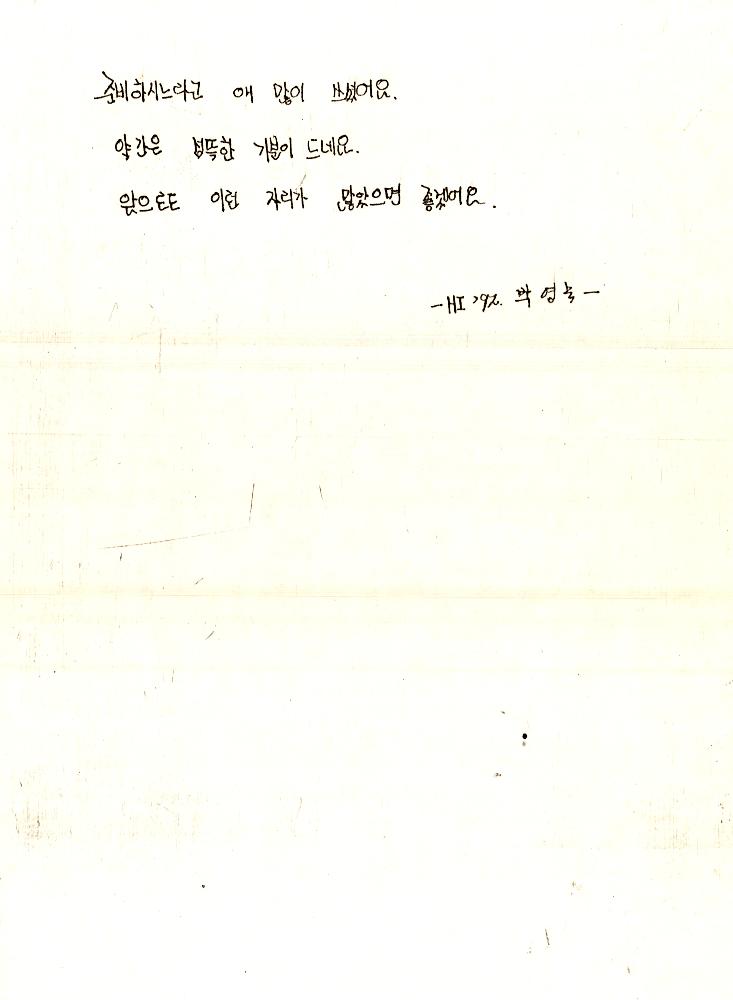 준비하시느라고 애 많이 쓰셨어요.
약간은 섬뜩한 기분이 드네요.
앞으로도 이런 자리가 많았으면 좋겠어요.
-HI '92. 박영